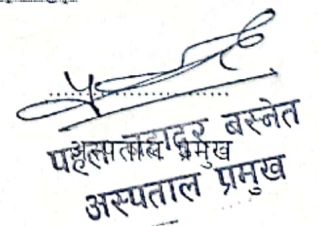 बहादुर बस्नेत
अस्पताल प्रमुख
अस्पताल प्रमुख